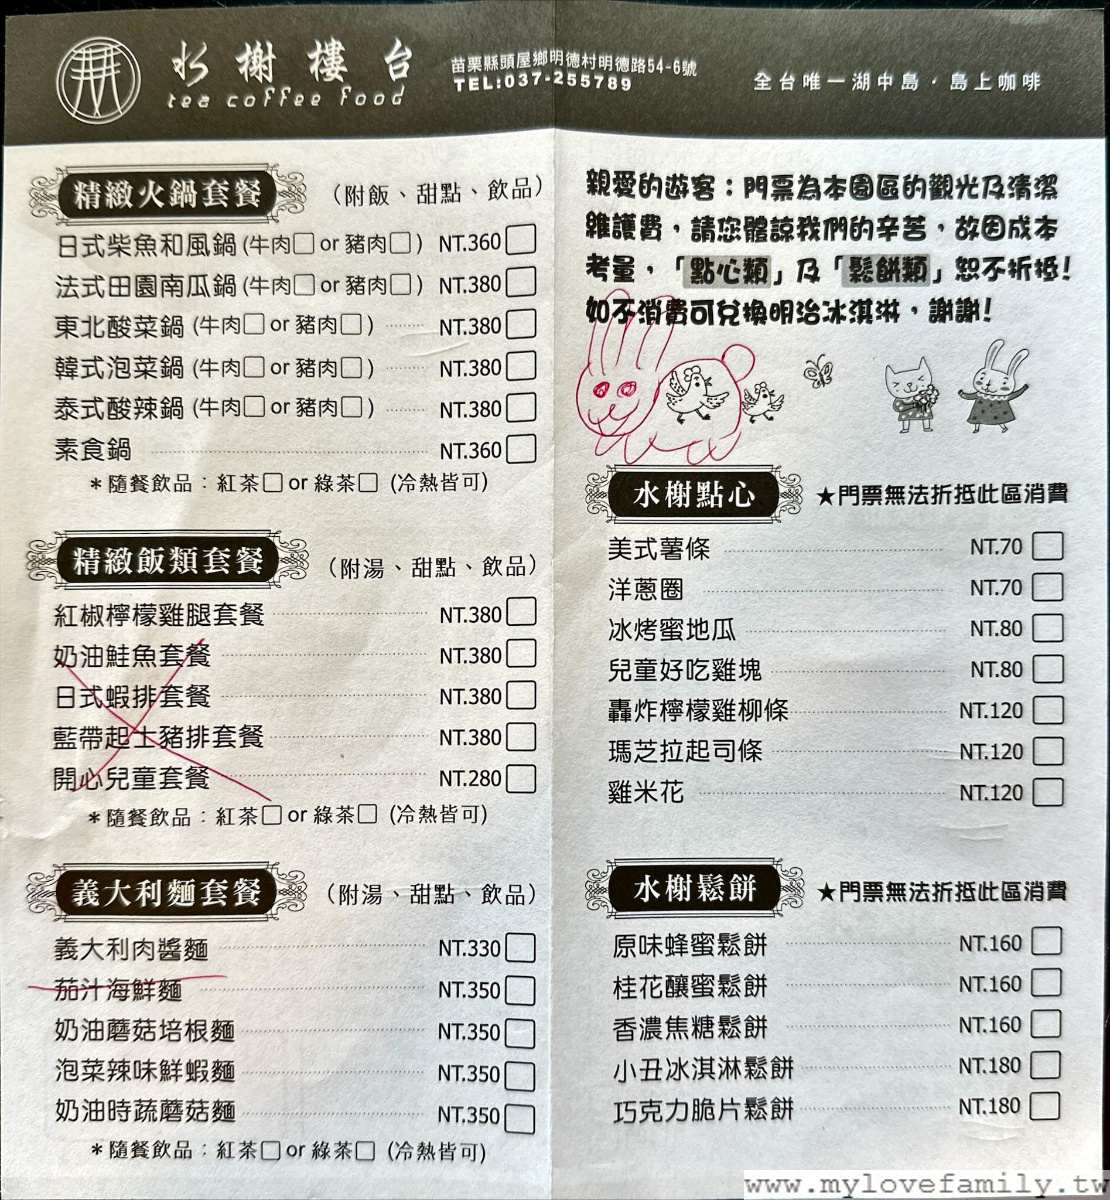 水榭樓台
tea coffee food
苗栗縣頭屋鄉明德村明德路54-6號
TEL:037-255789
全台唯一湖中島‧島上咖啡
精緻火鍋套餐 (附飯、甜點、飲品)
日式柴魚和風鍋(牛肉□or 豬肉□) NT.360 □
法式田園南瓜鍋(牛肉□or 豬肉□) NT.380 □
東北酸菜鍋 (牛肉□or 豬肉□) NT.380 □
韓式泡菜鍋 (牛肉□or 豬肉□) NT.380 □
泰式酸辣鍋 (牛肉□or 豬肉□) NT.380 □
素食鍋 NT.360 □
*隨餐飲品：紅茶□or 綠茶□ (冷熱皆可)
精緻飯類套餐 (附湯、甜點、飲品)
紅椒檸檬雞腿套餐 NT.380 □
奶油鮭魚套餐 NT.380 □
日式蝦排套餐 NT.380 □
藍帶起士豬排套餐 NT.380 □
開心兒童套餐 NT.280 □
*隨餐飲品：紅茶□or 綠茶□ (冷熱皆可)
義大利麵套餐 (附湯、甜點、飲品)
義大利肉醬麵 NT.330 □
茄汁海鮮麵 NT.350 □
奶油蘑菇培根麵 NT.350 □
泡菜辣味鮮蝦麵 NT.350 □
奶油時蔬蘑菇麵 NT.350 □
*隨餐飲品：紅茶□or 綠茶□ (冷熱皆可)
親愛的遊客：門票為本園區的觀光及清潔
維護費，請您體諒我們的辛苦，故因成本
考量，「點心類」及「鬆餅類」恕不折抵!
如不消費可兌換明治冰淇淋，謝謝!
水榭點心 ★門票無法折抵此區消費
美式薯條 NT.70 □
洋蔥圈 NT.70 □
冰烤蜜地瓜 NT.80 □
兒童好吃雞塊 NT.80 □
轟炸檸檬雞柳條 NT.120 □
瑪芝拉起司條 NT.120 □
雞米花 NT.120 □
水榭鬆餅 ★門票無法折抵此區消費
原味蜂蜜鬆餅 NT.160 □
桂花釀蜜鬆餅 NT.160 □
香濃焦糖鬆餅 NT.160 □
小丑冰淇淋鬆餅 NT.180 □
巧克力脆片鬆餅 NT.180 □
www.mylovefamily.tw